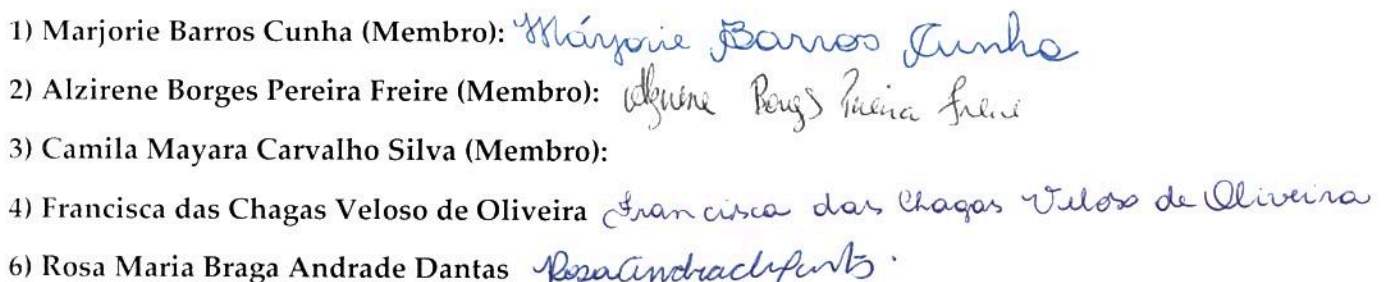 1) Marjorie Barros Cunha (Membro): Márjorie Barros Cunha
2) Alzirene Borges Pereira Freire (Membro): Alzirene Borges Pereira Freire
3) Camila Mayara Carvalho Silva (Membro):
4) Francisca das Chagas Veloso de Oliveira Francisca das Chagas Veloso de Oliveira
6) Rosa Maria Braga Andrade Dantas Rosa Andrade Dantas.